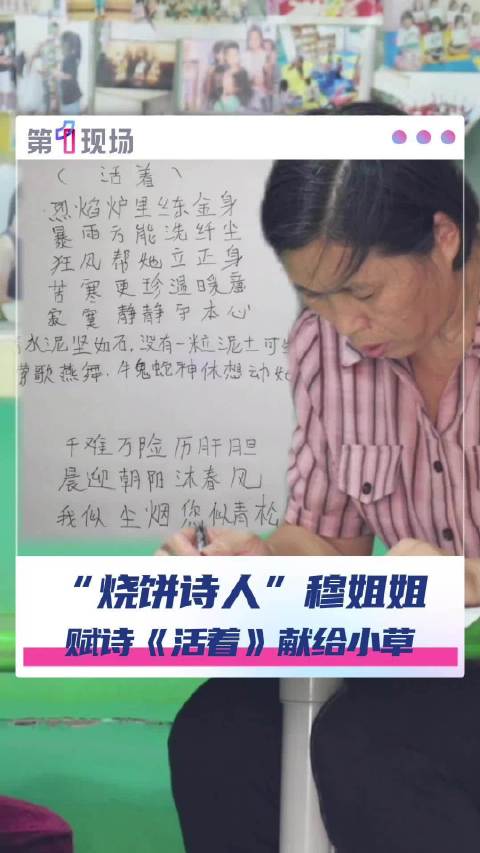 第1现场
（活着）
烈焰炉里练金身
暴雨方能洗纤尘
狂风帮她立正身
苦寒更珍温暖意
寂寞静静守本心
水泥坚如石，没有一粒泥土可
歌燕舞．牛鬼蛇神休想动她
千难万险历肝胆
晨迎朝阳沐春风
我似尘烟您似青松
“烧饼诗人”穆姐姐
赋诗《活着》献给小草